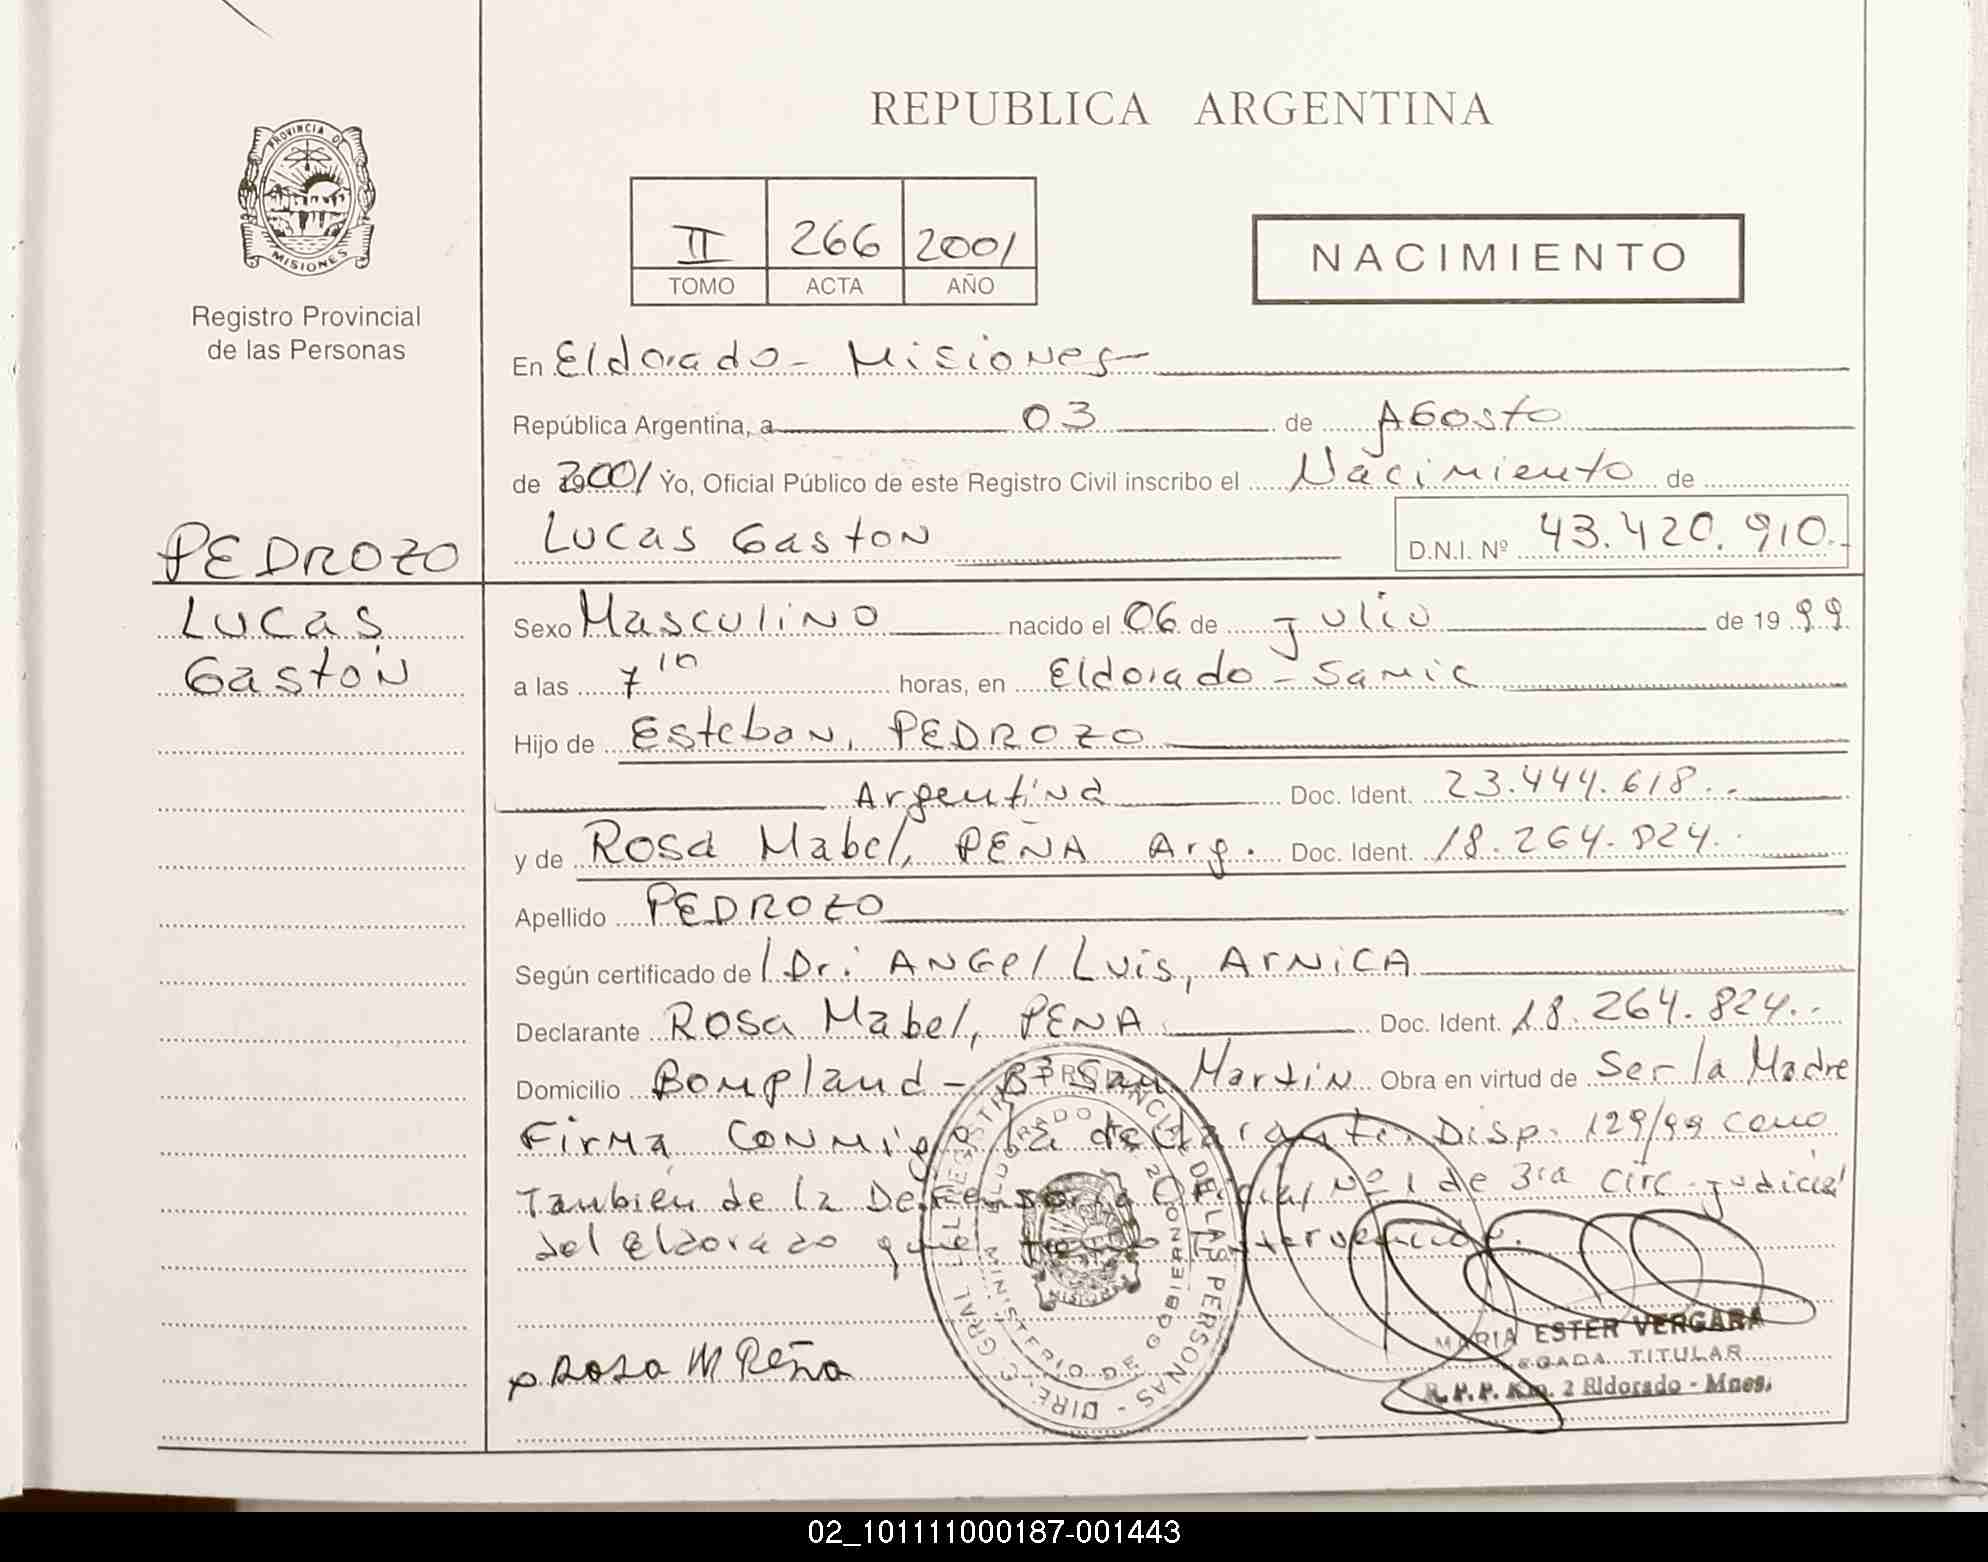 REPUBLICA ARGENTINA
PROVINCIA DE
MISIONES
Registro Provincial
de las Personas
II 266 2001
TOMO ACTA AÑO
NACIMIENTO
En Eldorado - Misiones
República Argentina, a 03 de Agosto
de 2001 Yo, Oficial Público de este Registro Civil inscribo el Nacimiento de
Lucas Gaston D.N.I. Nº 43.420.910.-
PEDROZO
Lucas
Gaston
Sexo Masculino nacido el 06 de julio de 1999
a las 7 10 horas, en Eldorado - Samic
Hijo de Esteban, PEDROZO
Argentina Doc. Ident. 23.444.618.-
y de Rosa Mabel, PEÑA Arg. Doc. Ident. 18.264.824.-
Apellido PEDROZO
Según certificado de Dr: ANGel Luis, ArNiCA
Declarante Rosa Mabel, PENA Doc. Ident. 18.264.824.-
Domicilio Bompland - Bº San Martin Obra en virtud de Ser la Madre
Firma Conmigo la declarante. Disp. 129/99 como
También de la Defensoría Oficial Nº 1 de 3ra Circ. judicial
del Eldorado que
Rosa M Peña
DIREC. GRAL. DEL REGISTRO PROVINCIAL DE LAS PERSONAS
ELDORADO
MINISTERIO DE GOBIERNO
MISIONES
MARIA ESTER VERGARA
TITULAR
R.P.P. Km. 2 Eldorado - Mnes.
02_101111000187-001443